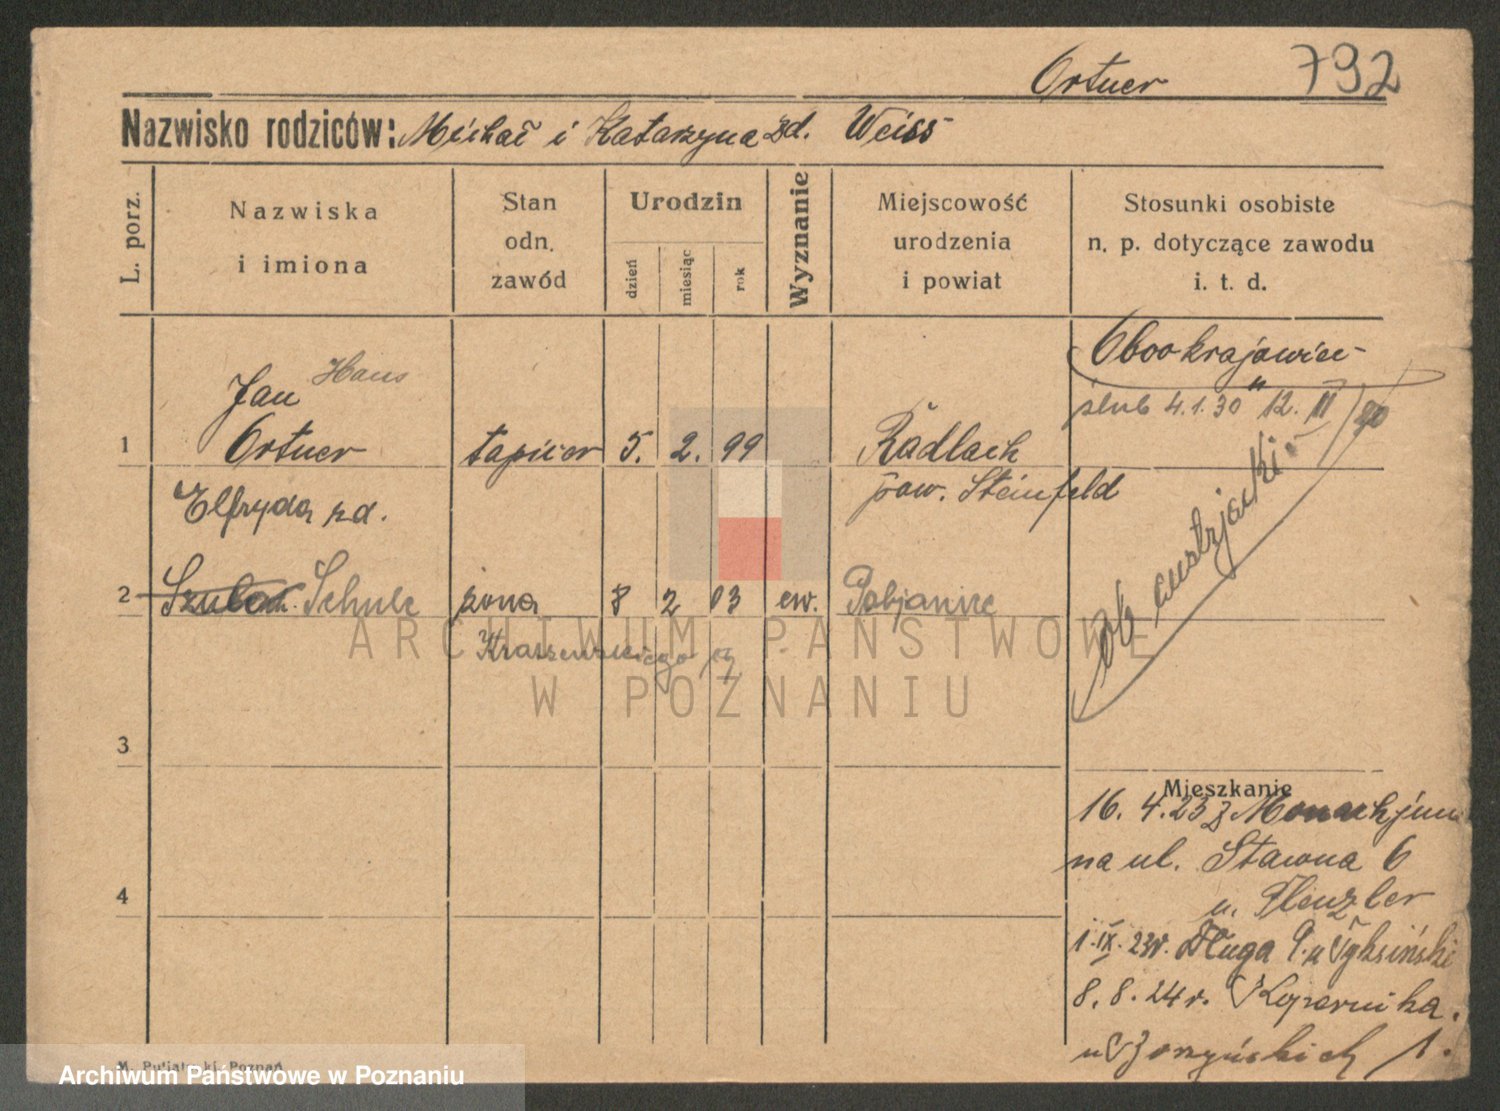 Ortner 792
Nazwisko rodziców: Michał i Katarzyna zd. Weiss
L. porz.
Nazwiska
i imiona
Stan
odn.
zawód
Urodzin
dzień
miesiąc
rok
Wyznanie
Miejscowość
urodzenia
i powiat
Stosunki osobiste
n. p. dotyczące zawodu
i. t. d.
Obcokrajowiec
ślub 4.1.30 12. II /30
Jan Hans
1 Ortner tapicer 5. 2. 99 Radlach
pow. Steinfeld
ob. austrjacki
Elfryda zd.
2 Schulz żona 8 2 03 ew. Pabjanice
Kraszewskiego
ARCHIWUM PAŃSTWOWE
W POZNANIU
3
4
Mieszkanie
16. 4. 23 z Monachjum
na ul. Stawna 6
u.
1. IX. 23r. Długa 9. u Tyksiński
8. 8. 24 r. Kopernika
u 1.
Poznań
Archiwum Państwowe w Poznaniu